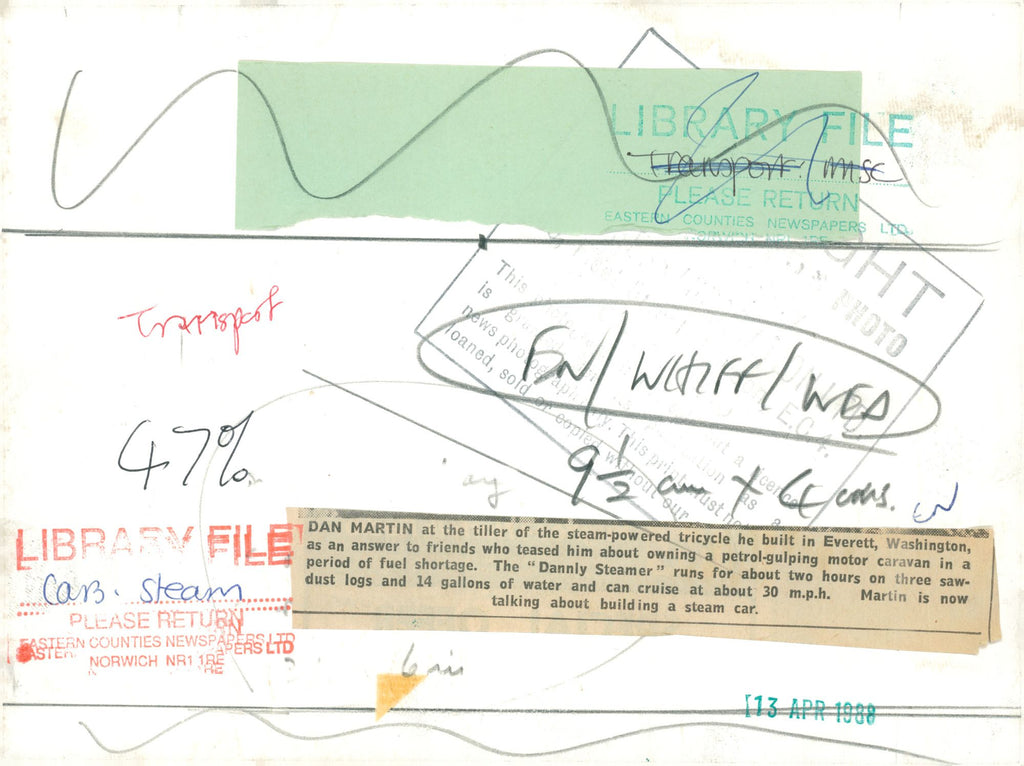 LIBRARY FILE
Transport / MISC
PLEASE RETURN
EASTERN COUNTIES NEWSPAPERS LTD.
This
is
news photograph
loaned, sold or copied without our
This print must
a licence
PHOTO
E.C.4.
Transport
EN / WHIFF / WED
47%
9½ cm × 4 cols.
EN
DAN MARTIN at the tiller of the steam-powered tricycle he built in Everett, Washington,
as an answer to friends who teased him about owning a petrol-gulping motor caravan in a
period of fuel shortage. The "Dannly Steamer" runs for about two hours on three saw-
dust logs and 14 gallons of water and can cruise at about 30 m.p.h. Martin is now
talking about building a steam car.
LIBRARY FILE
Cars. Steam
PLEASE RETURN
EASTERN COUNTIES NEWSPAPERS LTD
NORWICH NR1 1RE
13 APR 1988